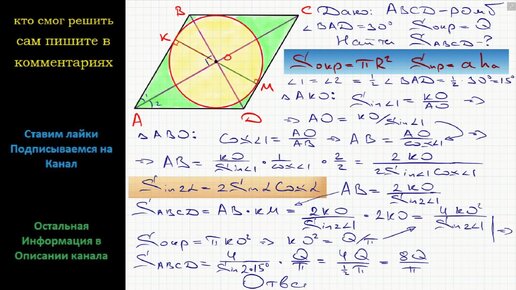 кто смог решить
сам пишите в
комментариях
Ставим лайки
Подписываемся на
Канал
Остальная
Информация в
Описании канала
B C
K
O
M
1 2
A D
Дано: ABCD - ромб
∠BAD = 30° Sокр = Q
Найти SABCD - ?
Sокр = πR² Sпр = a ha
∠1 = ∠2 = ½ ∠BAD = ½ · 30° = 15°
△AKO: Sin∠1 = KO/AO ⇒
⇒ AO = KO/Sin∠1
△ABO: Cos∠1 = AO/AB ⇒ AB = AO/Cos∠1 ⇒
⇒ AB = KO/Sin∠1 · 1/Cos∠1 · 2/2 = 2KO/2Sin∠1Cos∠1
Sin2α = 2Sinα Cosα AB = 2KO/Sin2∠1
SABCD = AB · KM = 2KO/Sin2∠1 · 2KO = 4KO²/Sin2∠1 ⇒
Sокр = πKO² ⇒ KO² = Q/π
SABCD = 4/Sin2·15° · Q/π = 4Q/½π = 8Q/π
Ответ